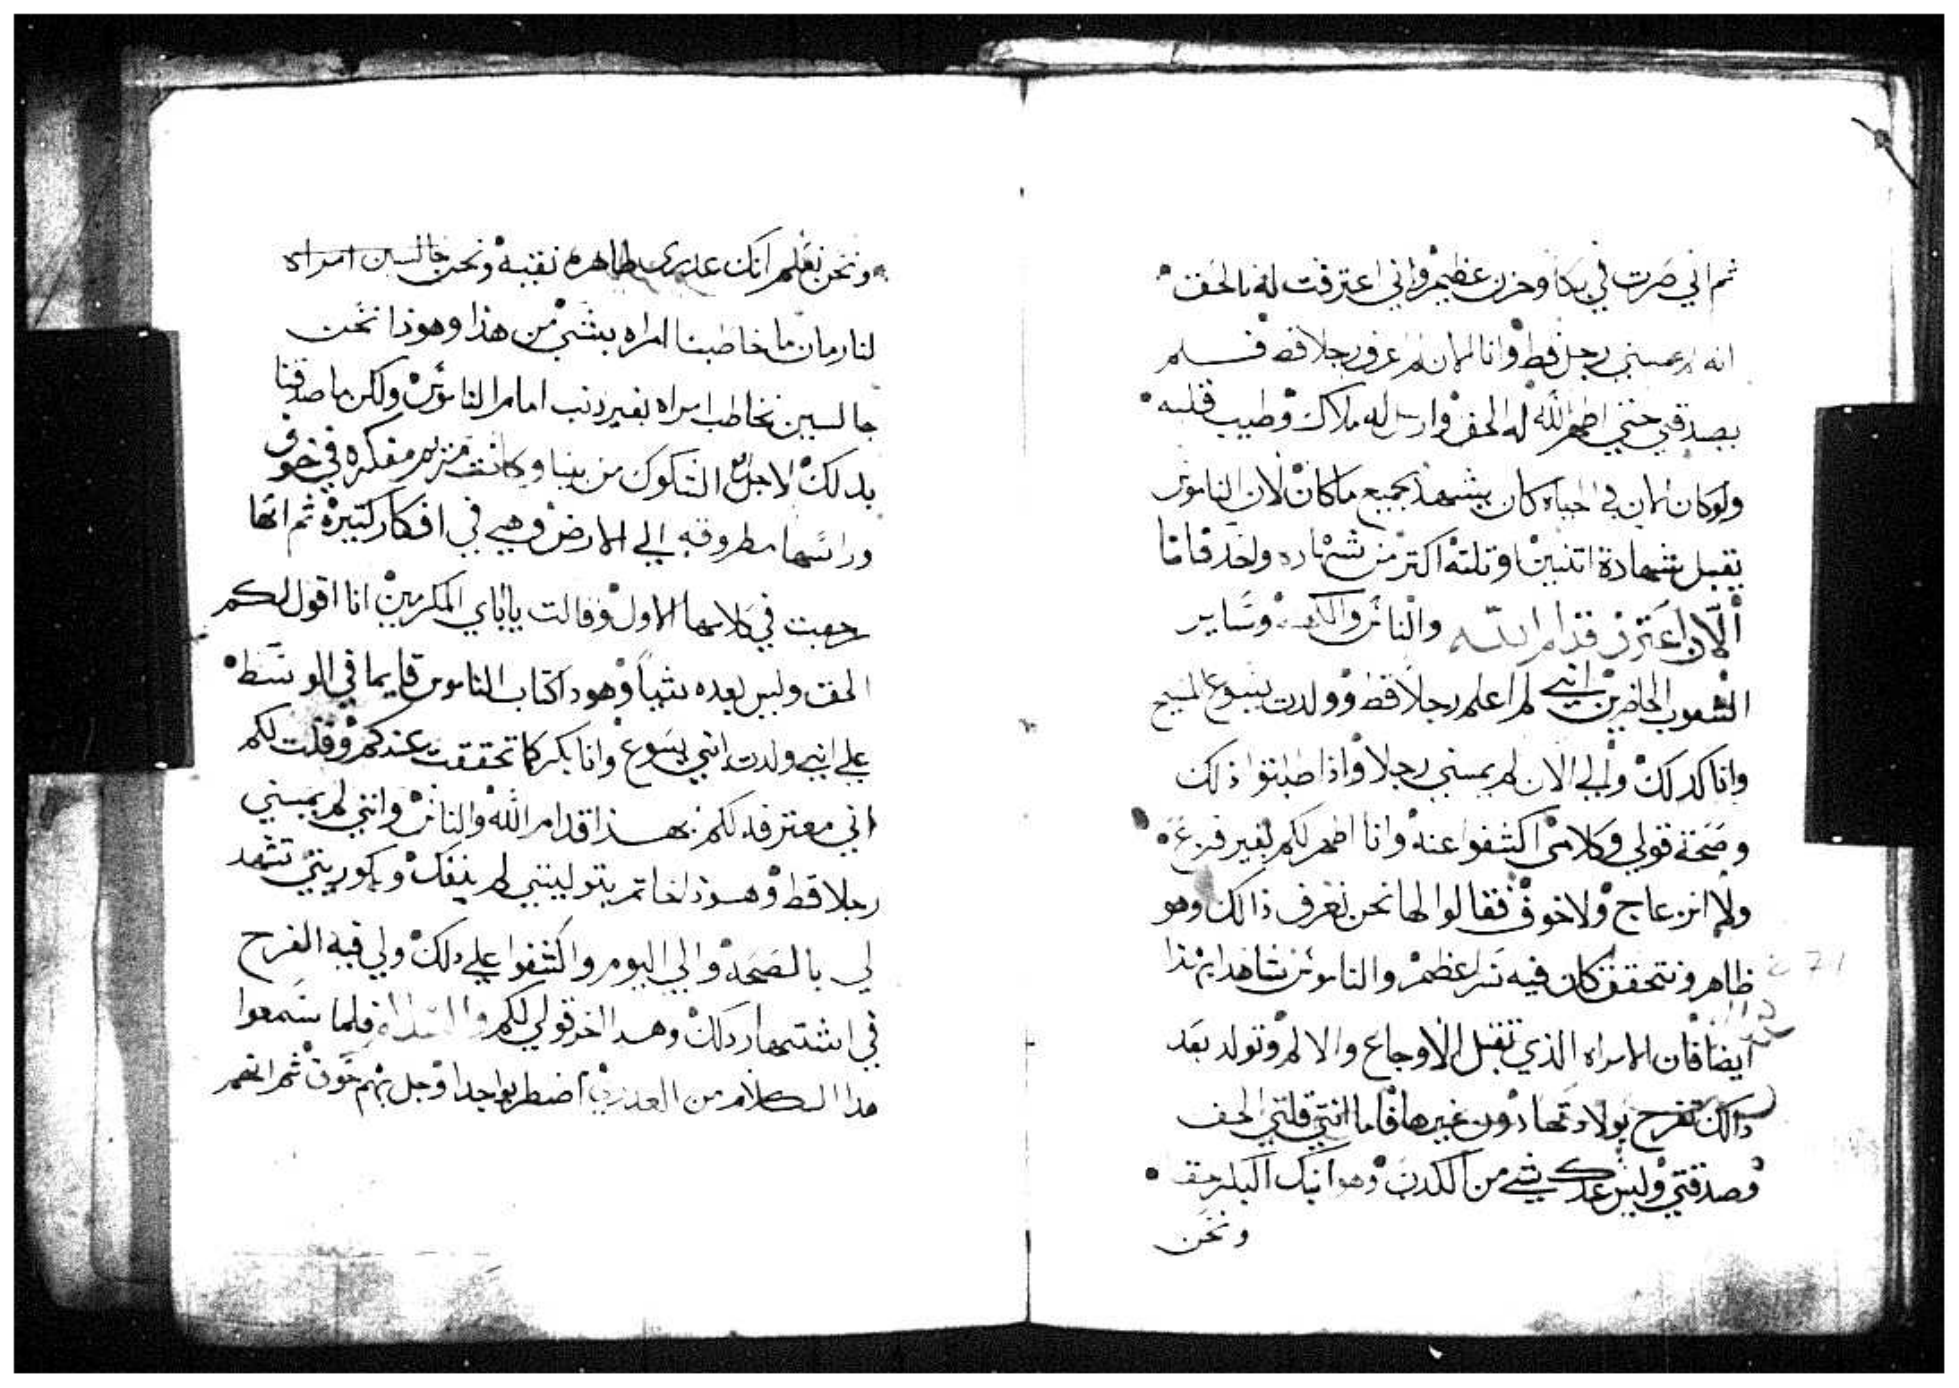 ثم اني صرت في بكا وحزن عظيم واني اعترفت له بالحق
انه لم يمسني رجل قط وانا الان لم اعرف رجلا قط فلم
يصدقني حتي اظهر الله له الحق وارسل له ملاك وطيب قلبه
ولو كان الان في الحياه كان يشهد بجميع ما كان لان الناموس
يقبل شهادة اتنين او تلته اكتر من شهاده واحد فاما
الان اعترف قدام الله والناس والكهنه وساير
الشعوب الحاضرين انني لم اعلم رجلا قط وولدت يسوع المسيح
وانا كدلك والي الان لم يمسني رجلا واذا طلبتوا ذلك
وصحة قولي وكلامي اكشفوا عنه وانا اظهر لكم بغير فزع
ولا انزعاج ولا خوف فقالوا لها نحن نعرف ذالك وهو
ظاهر ونتحقق كان فيه سر اعظم والناموس شاهد بهذا
ايضا فان الامراه الذي تقبل الاوجاع والالم وتولد بعد
دالك تفرح بولادتها دون غيرها فاما انتي قلتي الحق
وصدقتي وليس عندك شي من الكدب وهو انك البكر حقا
ونحن
ونحن نعلم انك عدري طاهره نقيه ونحن جالسين امراه
لنا زمان ما خاطبنا امراه بشي من هذا وهوذا نحن
جالسين نخاطب امراه بغير دنب امام الناموس ولكن ما صدقنا
بدلك لاجل الشكوك من بيننا وكانت مريم مفكره في خوف
وراسها مطروقه الي الارض وهي في افكار كتيرة ثم انها
رجعت في كلامها الاول وقالت ياباي المكرمين انا اقول لكم
الحق وليس بعده شياً وهودا كتاب الناموس قايما في الوسط
علي انني ولدت ابني يسوع وانا بكر كما تحققت عندكم وقلت لكم
اني معترفه لكم بهذا قدام الله والناس وانني لم يمسني
رجلا قط وهوذا خاتم بتوليتي لم ينفك وبكوريتي تشهد
لي بالصحة والي اليوم واكشفوا علي دلك ولي فيه الفرح
في اشتهار دلك وهدا اخر قولي لكم والسلام فلما سمعوا
هدا الكلام من العدري اضطربوا جدا وجل بهم خوف ثم انهم